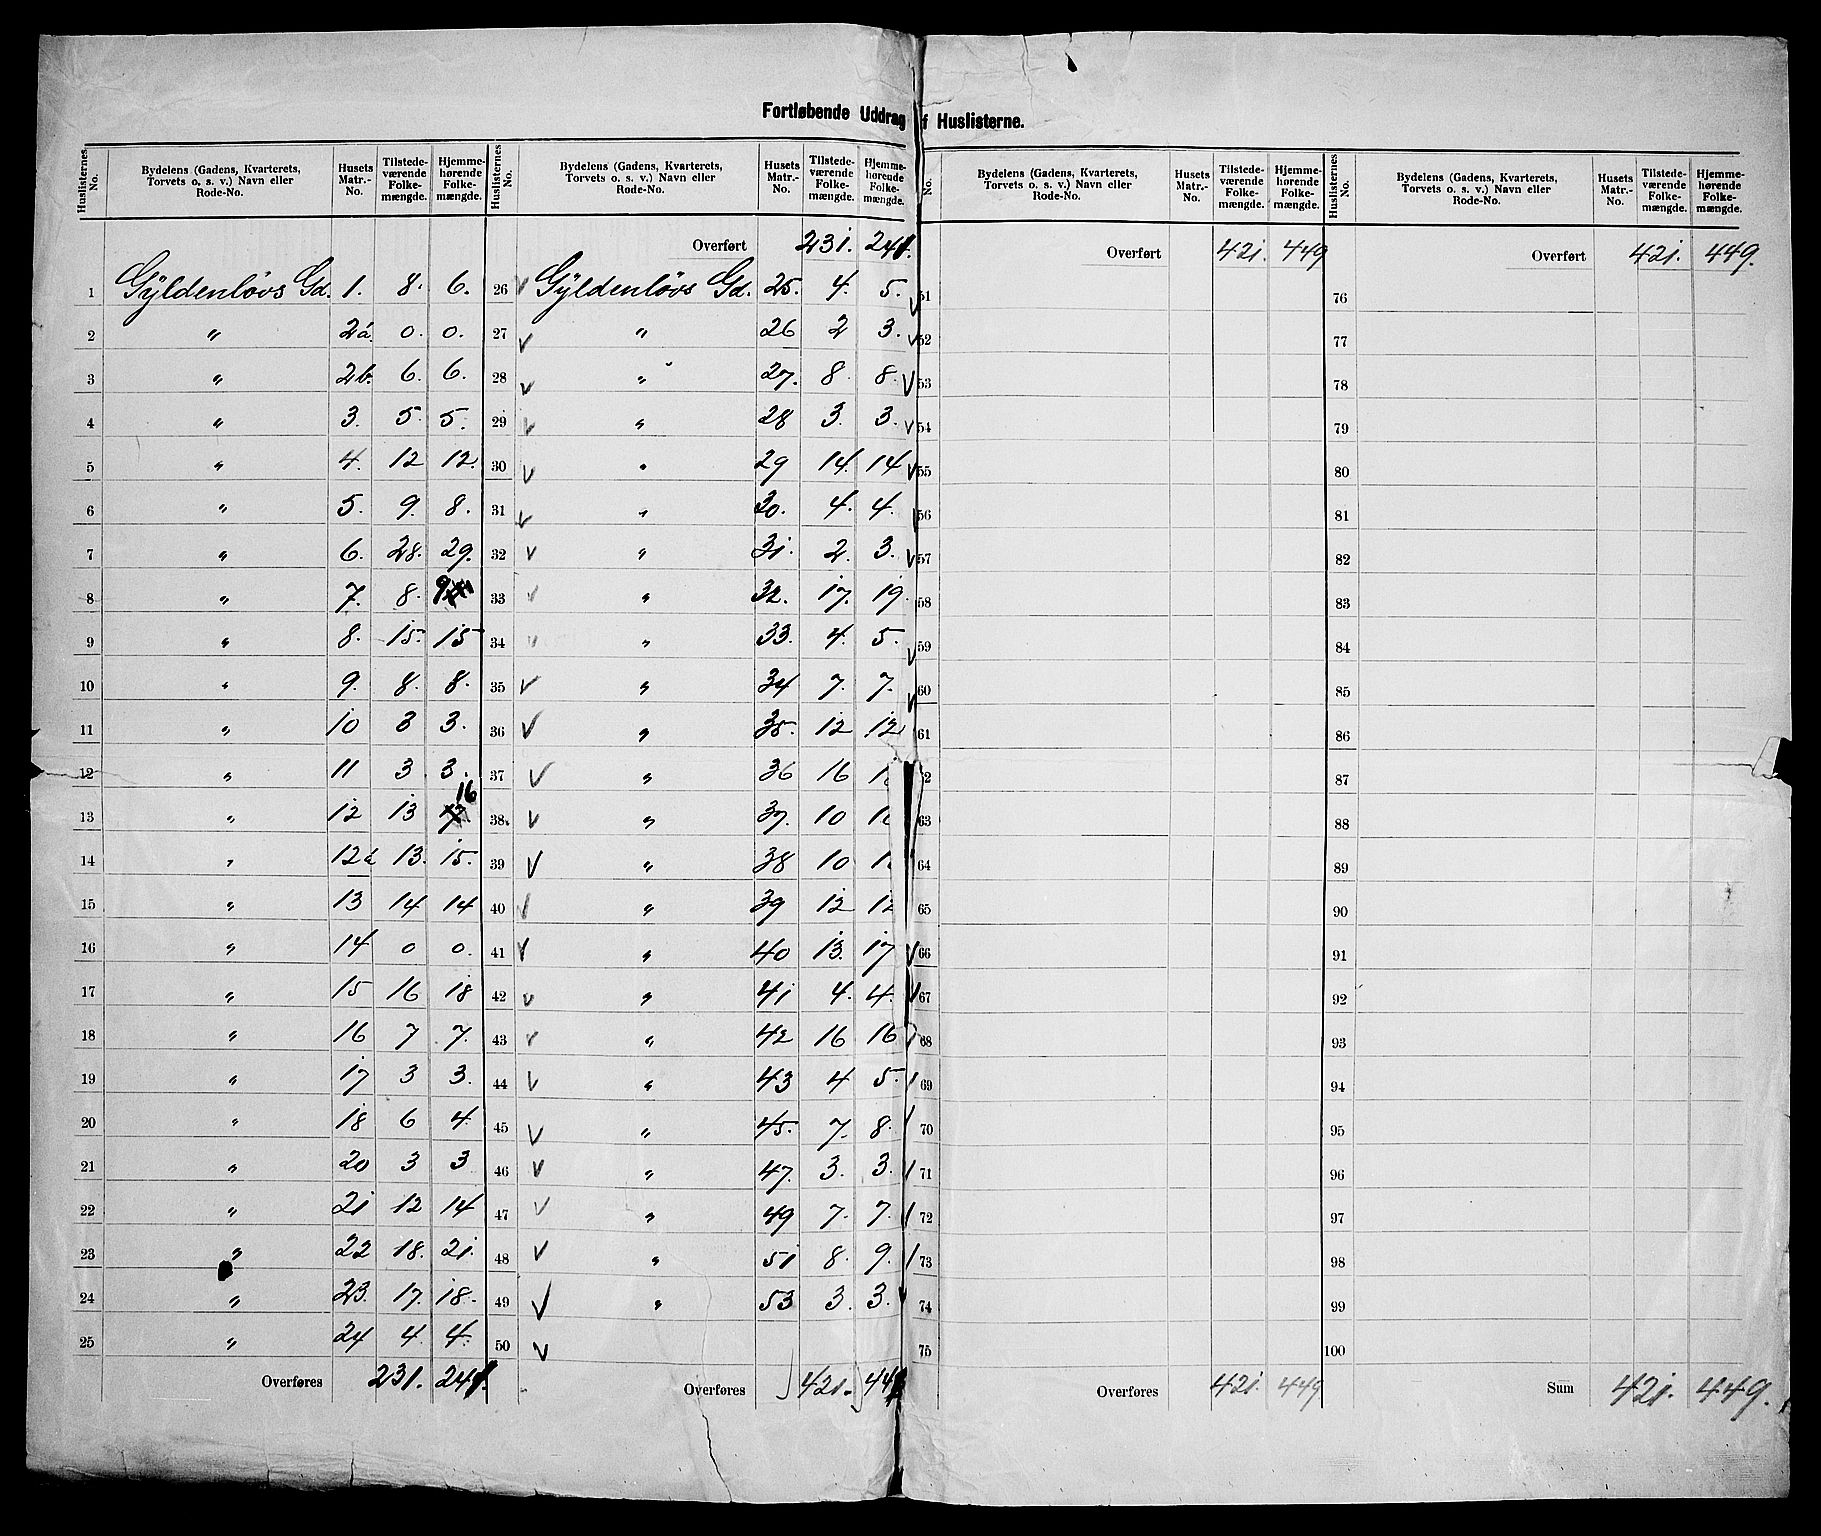 Fortløbende Uddrag f Huslisterne.
Huslisternes No. | Bydelens (Gadens, Kvarterets, Torvets o. s. v.) Navn eller Rode-No. | Husets Matr.-No. | Tilstede-værende Folke-mængde. | Hjemme-hørende Folke-mængde.
1 Gÿldenlövs Gd. 1. 8. 6.
2 " 2a. 0. 0.
3 " 2b. 6. 6.
4 " 3. 5. 5.
5 " 4. 12 12.
6 " 5. 9. 8.
7 " 6. 28. 29.
8 " 7. 8. 9
9 " 8. 15. 15
10 " 9. 8. 8.
11 " 10 3 3.
12 " 11 3 3.
13 " 12 13 16
14 " 12a 13. 15.
15 " 13 14 14
16 " 14 0 0.
17 " 15 16 18
18 " 16 7 7.
19 " 17 3 3.
20 " 18 6 4.
21 " 20 3 3
22 " 21 12 14
23 " 22 18. 21.
24 " 23. 17. 18.
25 " 24 4. 4.
Overføres 231. 241.
Huslisternes No. | Bydelens (Gadens, Kvarterets, Torvets o. s. v.) Navn eller Rode-No. | Husets Matr.-No. | Tilstede-værende Folke-mængde. | Hjemme-hørende Folke-mængde.
Overført 231. 241.
26 Gÿldenlövs Gd. 25. 4. 5.
27 " 26 2 3.
28 " 27. 8. 8.
29 " 28 3. 3.
30 " 29 14. 14
31 " 30. 4. 4.
32 " 31. 2. 3.
33 " 32. 17. 19.
34 " 33. 4. 5.
35 " 34 7. 7.
36 " 35. 12 12
37 " 36 16
38 " 37. 10
39 " 38 10
40 " 39 12 12
41 " 40 13. 17
42 " 41 4. 4.
43 " 42 16 16
44 " 43 4 5.
45 " 45. 7. 8.
46 " 47. 3. 3.
47 " 49 7. 7.
48 " 51 8. 9.
49 " 53 3. 3.
50
Overføres 421. 44
No. | Bydelens (Gadens, Kvarterets, Torvets o. s. v.) Navn eller Rode-No. | Husets Matr.-No. | Tilstede-værende Folke-mængde. | Hjemme-hørende Folke-mængde.
Overført 421. 449
51
52
53
54
55
56
57
58
59
60
61
2
63
64
65
66
67
68
69
70
71
72
73
74
75
Overføres 421. 449
Huslisternes No. | Bydelens (Gadens, Kvarterets, Torvets o. s. v.) Navn eller Rode-No. | Husets Matr.-No. | Tilstede-værende Folke-mængde. | Hjemme-hørende Folke-mængde.
Overført 421. 449.
76
77
78
79
80
81
82
83
84
85
86
87
88
89
90
91
92
93
94
95
96
97
98
99
100
Sum 421. 449.